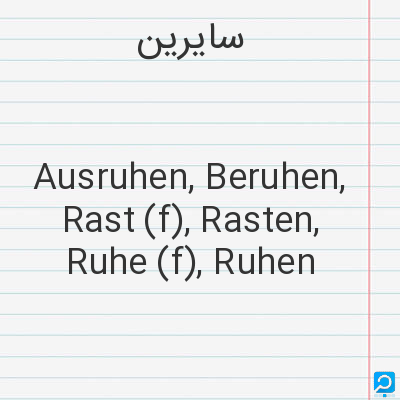 سایرین
Ausruhen, Beruhen,
Rast (f), Rasten,
Ruhe (f), Ruhen